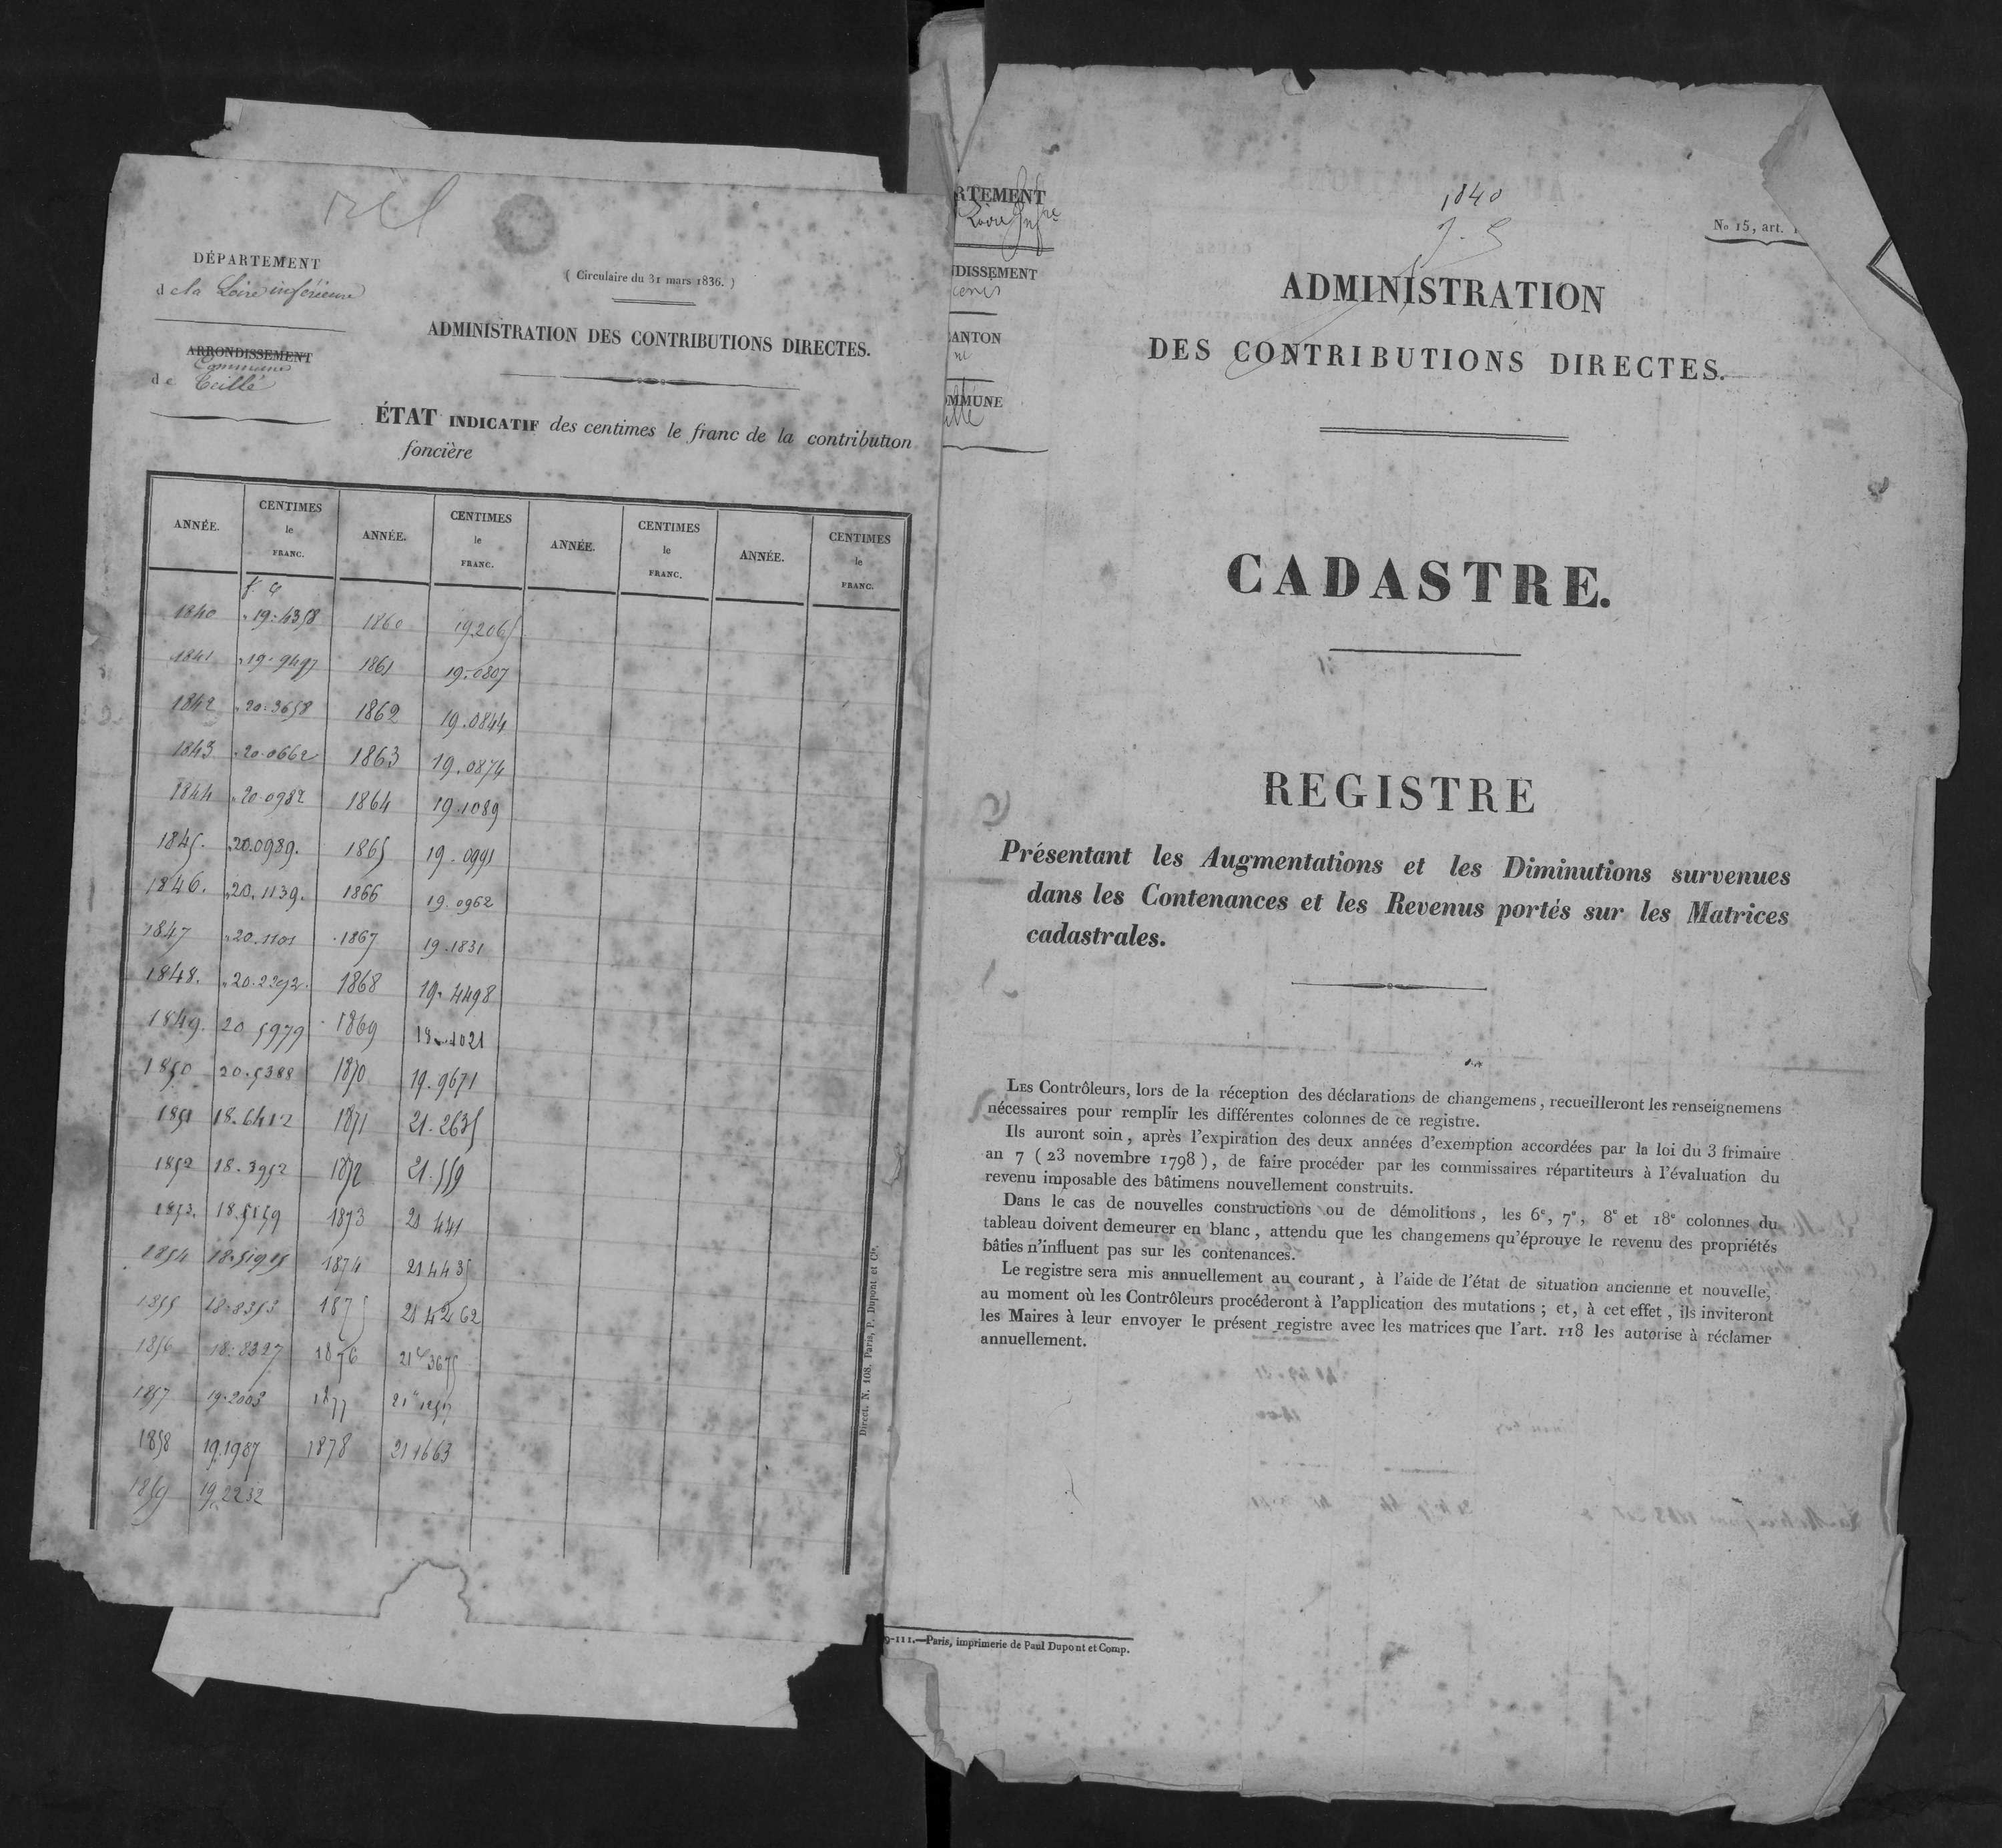 DÉPARTEMENT
de la Loire inférieure
ARRONDISSEMENT
Commune
de Teillé
( Circulaire du 31 mars 1836. )
ADMINISTRATION DES CONTRIBUTIONS DIRECTES.
ÉTAT INDICATIF des centimes le franc de la contribution
foncière
ANNÉE. CENTIMES le FRANC. ANNÉE. CENTIMES le FRANC. ANNÉE. CENTIMES le FRANC. ANNÉE. CENTIMES le FRANC.
f. c
1840 19.4358 1860 192065
1841 19.9497 1861 19.0807
1842 20.3658 1862 19.0844
1843 20.0662 1863 19.0874
1844 20.0982 1864 19.1089
1845. 20.0989. 1865 19.0991
1846. 20.1139. 1866 19.0962
1847 20.1101 1867 19.1831
1848. 1868 19.4498
1849. 20 5979 1869
1850 20.5388 1870 19.9671
1851 18.6412 1871 21.2635
1852 18.3952 1872 21.559
1853. 18.5159 1873 21 441
1854 1874 21 4435
1855 18.8353 1875 21 4262
1856 18.8327 1876 21 3675
1857 19.2003 1877
1858 19.1987 1878 21 1663
1859 19.2232
Direct. N. 108. Paris, P. Dupont et Cie.
RTEMENT
Loire Infre
DISSEMENT
cenis
ANTON
MMUNE
illé
1840
No 15, art.
ADMINISTRATION
DES CONTRIBUTIONS DIRECTES.
CADASTRE.
REGISTRE
Présentant les Augmentations et les Diminutions survenues
dans les Contenances et les Revenus portés sur les Matrices
cadastrales.
LES Contrôleurs, lors de la réception des déclarations de changemens, recueilleront les renseignemens
nécessaires pour remplir les différentes colonnes de ce registre.
Ils auront soin, après l'expiration des deux années d'exemption accordées par la loi du 3 frimaire
an 7 (23 novembre 1798), de faire procéder par les commissaires répartiteurs à l'évaluation du
revenu imposable des bâtimens nouvellement construits.
Dans le cas de nouvelles constructions ou de démolitions, les 6e, 7e, 8e et 18e colonnes du
tableau doivent demeurer en blanc, attendu que les changemens qu'éprouve le revenu des propriétés
bâties n'influent pas sur les contenances.
Le registre sera mis annuellement au courant, à l'aide de l'état de situation ancienne et nouvelle,
au moment où les Contrôleurs procéderont à l'application des mutations; et, à cet effet, ils inviteront
les Maires à leur envoyer le présent registre avec les matrices que l'art. 118 les autorise à réclamer
annuellement.
9-111.—Paris, imprimerie de Paul Dupont et Comp.